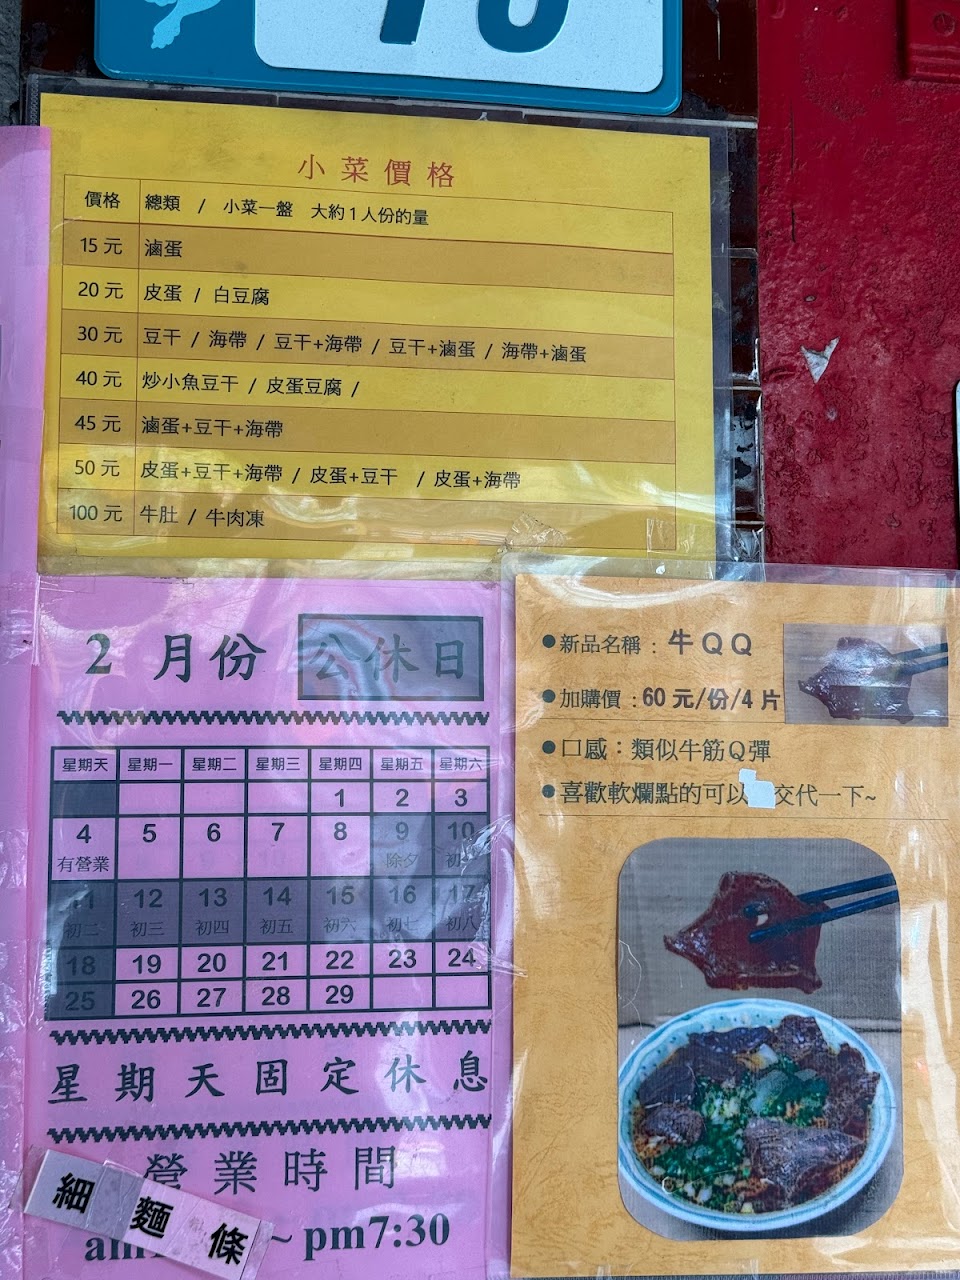 小菜價格
價格 總類 / 小菜一盤 大約1人份的量
15 元 滷蛋
20 元 皮蛋 / 白豆腐
30 元 豆干 / 海帶 / 豆干+海帶 / 豆干+滷蛋 / 海帶+滷蛋
40 元 炒小魚豆干 / 皮蛋豆腐 /
45 元 滷蛋+豆干+海帶
50 元 皮蛋+豆干+海帶 / 皮蛋+豆干 / 皮蛋+海帶
100 元 牛肚 / 牛肉凍
2 月份 公休日
星期天 星期一 星期二 星期三 星期四 星期五 星期六
1 2 3
4 5 6 7 8 9 10
有營業 除夕 初一
11 12 13 14 15 16 17
初二 初三 初四 初五 初六 初七 初八
18 19 20 21 22 23 24
25 26 27 28 29
星期天固定休息
營業時間
~ pm7:30
細 麵 條
●新品名稱：牛QQ
●加購價：60 元/份/4 片
●口感：類似牛筋Q彈
●喜歡軟爛點的可以 交代一下~